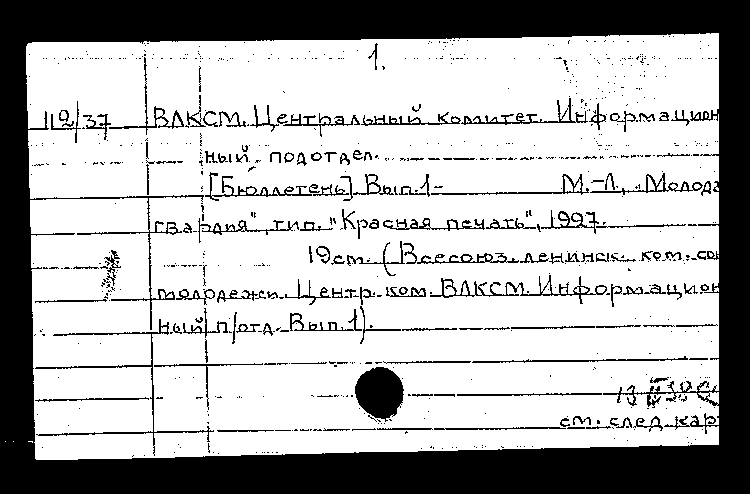 1.
112/37 ВЛКСМ. Центральный комитет. Информацион
ный подотдел.
[Бюллетень]. Вып. 1- М.-Л., "Молода
гвардия", тип. "Красная печать", 1927.
19 см. (Всесоюз. ленинск. ком. сою
молодежи. Центр. ком. ВЛКСМ. Информацион
ный п/отд. Вып. 1).
см. след. кар